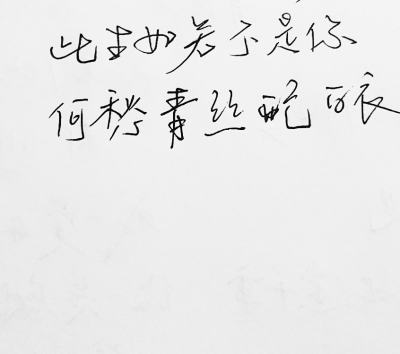 此生如若不是你
何青丝配衣